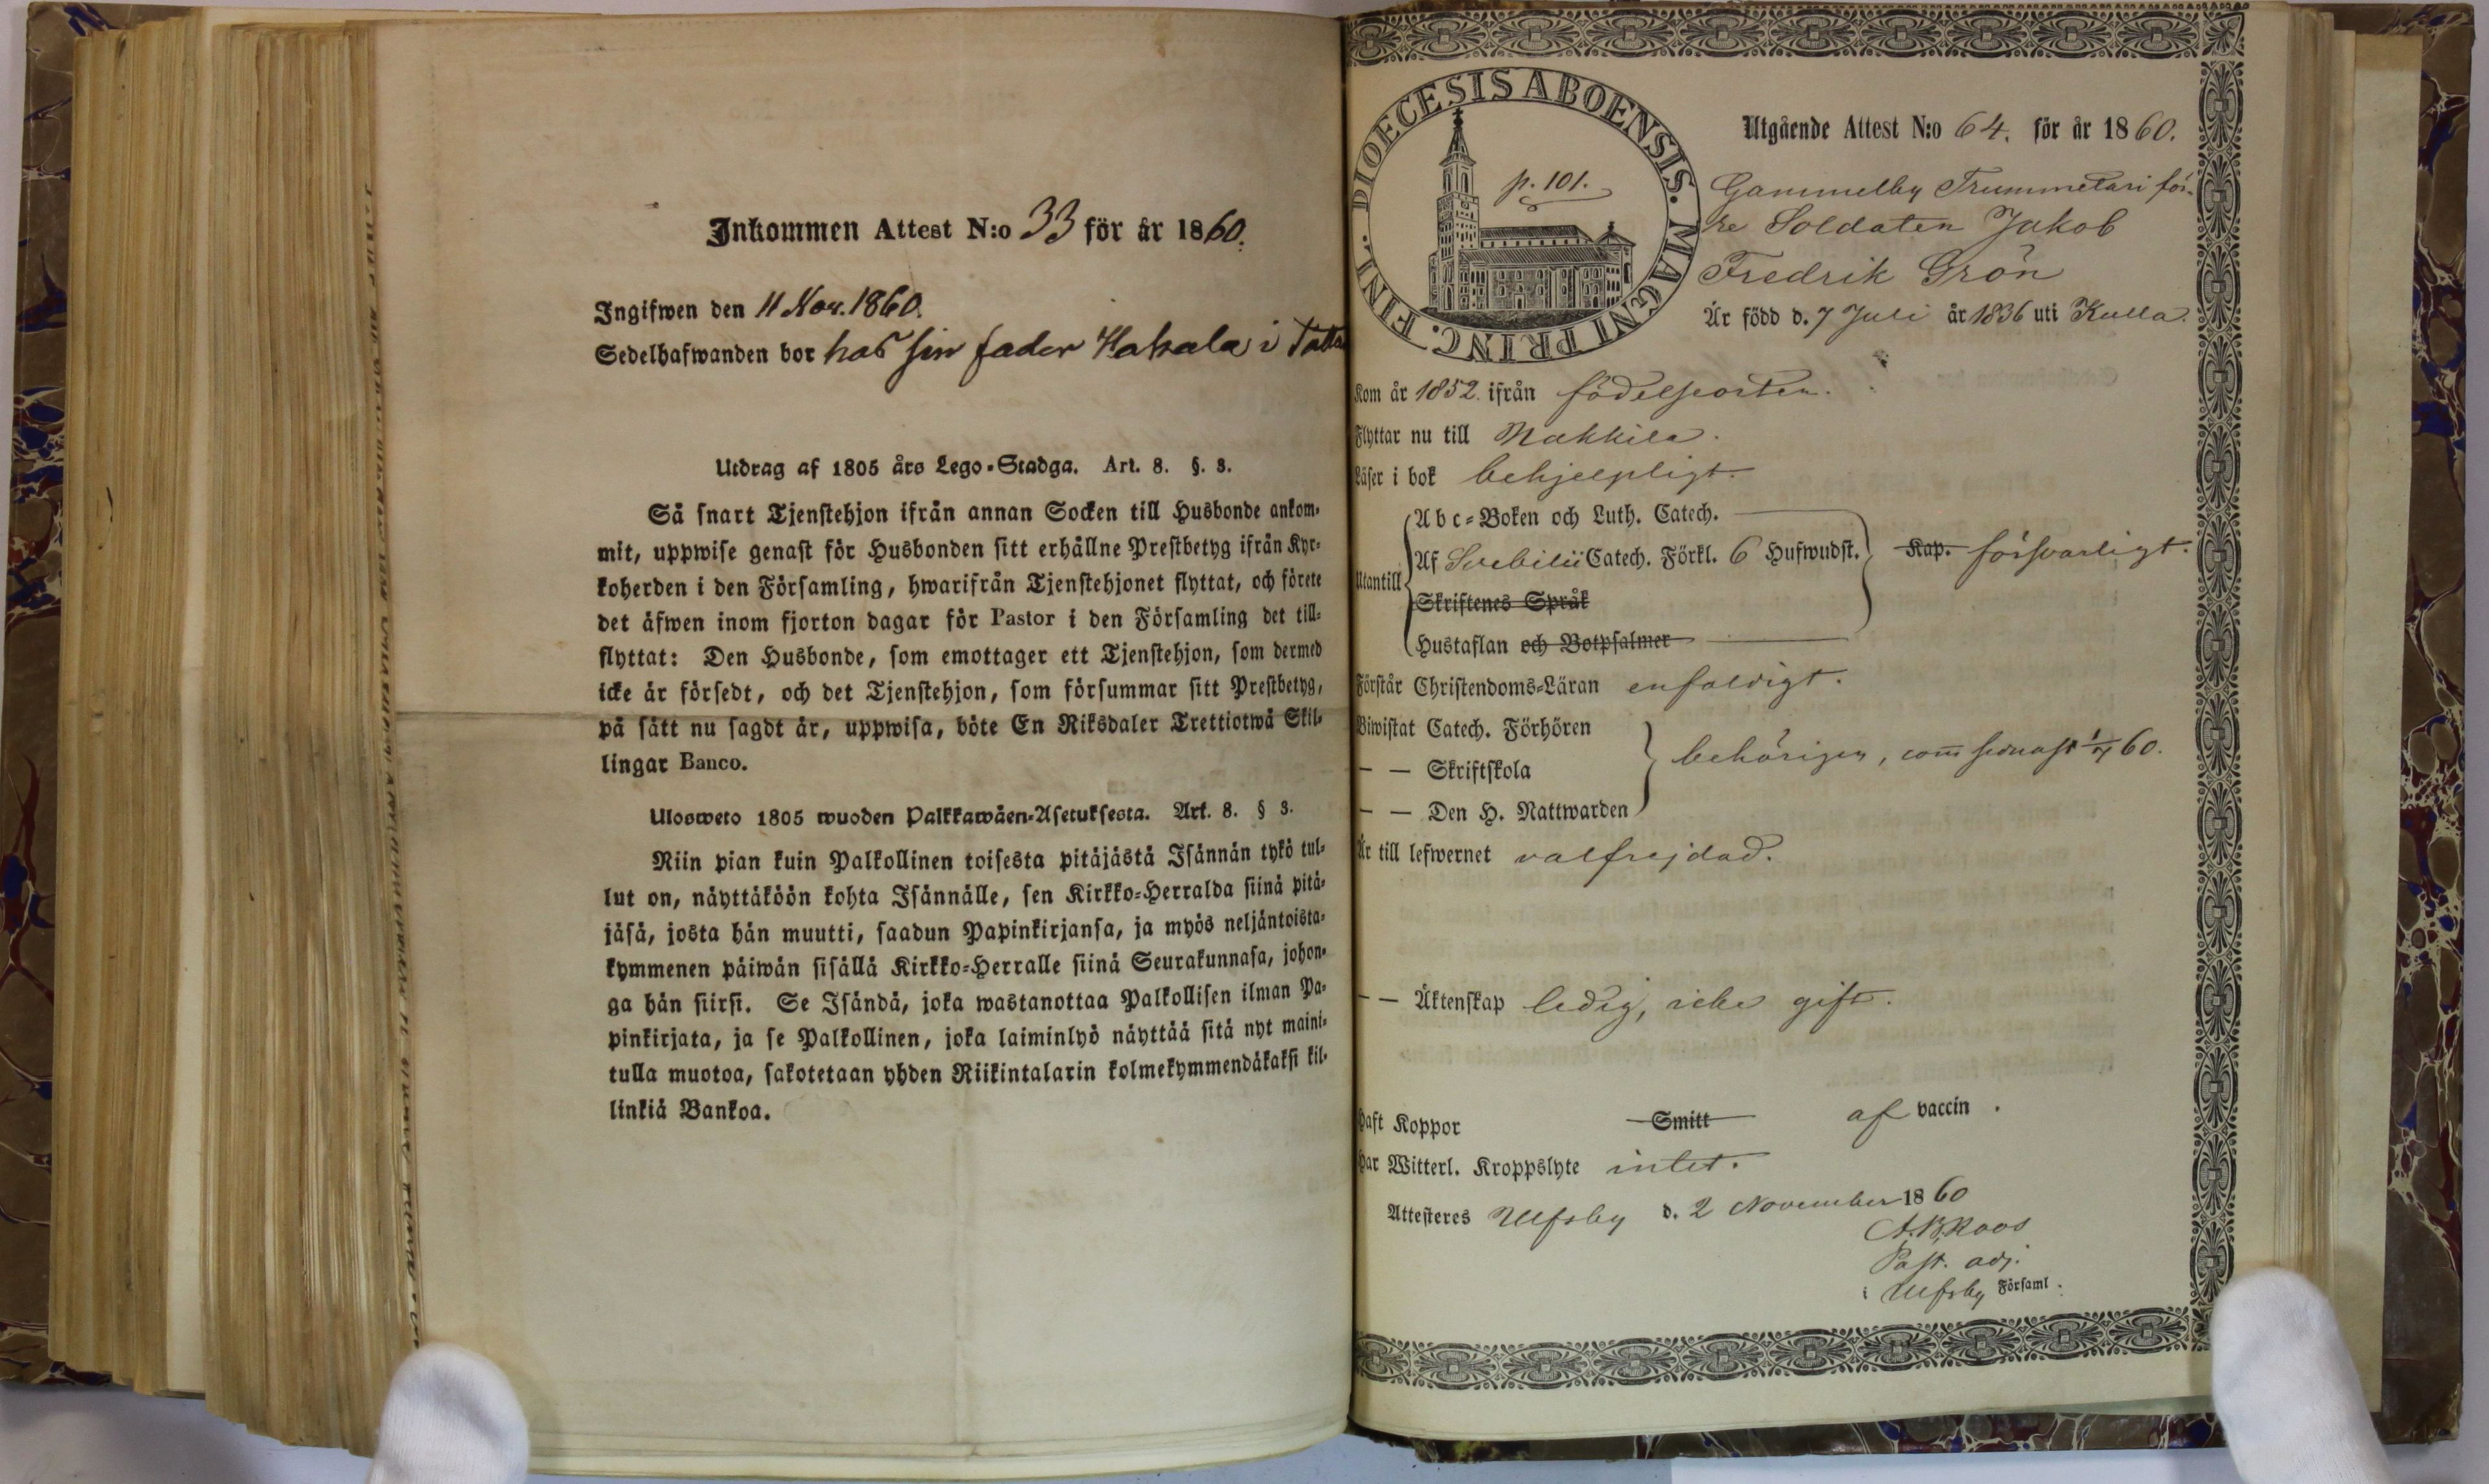 Inkommen Attest N:o 33 för år 1860.
Ingifwen den 11 Nov. 1860.
Sedelhafwanden bor hos sin fader Hakala i
Utdrag af 1805 års Lego-Stadga. Art. 8. §. 3.
Så snart Tjenstehjon ifrån annan Socken till Husbonde ankom-
mit, uppwise genast för Husbonden sitt erhållne Prestbetyg ifrån Kyr-
koherden i den Församling, hwarifrån Tjenstehjonet flyttat, och förete
det äfwen inom fjorton dagar för Pastor i den Församling det till-
flyttat: Den Husbonde, som emottager ett Tjenstehjon, som dermed
icke är försedt, och det Tjenstehjon, som försummar sitt Prestbetyg,
på sätt nu sagdt är, uppwisa, böte En Riksdaler Trettiotwå Skil-
lingar Banco.
Ulosweto 1805 wuoden Palkkawäen-Asetuksesta. Art. 8. § 3.
Niin pian kuin Palkollinen toisesta pitäjästä Isännän tykö tul-
lut on, näyttäköön kohta Isännälle, sen Kirkko-Herralda siinä pitä-
jäsä, josta hän muutti, saadun Papinkirjansa, ja myös neljäntoista-
kymmenen päiwän sisällä Kirkko-Herralle siinä Seurakunnasa, johon-
ga hän siirsi. Se Isändä, joka wastanottaa Palkollisen ilman Pa-
pinkirjata, ja se Palkollinen, joka laiminlyö näyttää sitä nyt maini-
tulla muotoa, sakotetaan yhden Riikintalarin kolmekymmendäkaksi kil-
linkiä Bankoa.
DIOECESIS ABOENSIS. MAGNI PRINC. FINL.
p. 101.
Utgående Attest N:o 64. för år 1860.
Gammelby Trummetari för-
re Soldaten Jakob
Fredrik Grön
Är född d. 7 Juli år 1836 uti Kulla.
Kom år 1852. ifrån födelseorten.
Flyttar nu till Nakkila.
Läser i bok behjelpligt.
Utantill
Abc-Boken och Luth. Catech.
Af Svebilii Catech. Förkl. 6 Hufwudst. Kap. försvarligt.
Skriftenes Språk
Hustaflan och Botpsalmer
Förstår Christendoms-Läran enfaldigt.
Biwistat Catech. Förhören
— — Skriftskola behörigen, com senast 1/7 60.
— — Den H. Nattwarden
Är till lefwernet välfrejdad.
— — Äktenskap ledig, icke gift.
Haft Koppor Smitt af vaccin.
Har Witterl. Kroppslyte intet.
Attesteres Ulfsby d. 2 November 1860
A. B. Roos
Past. adj.
i Ulfsby Församl.